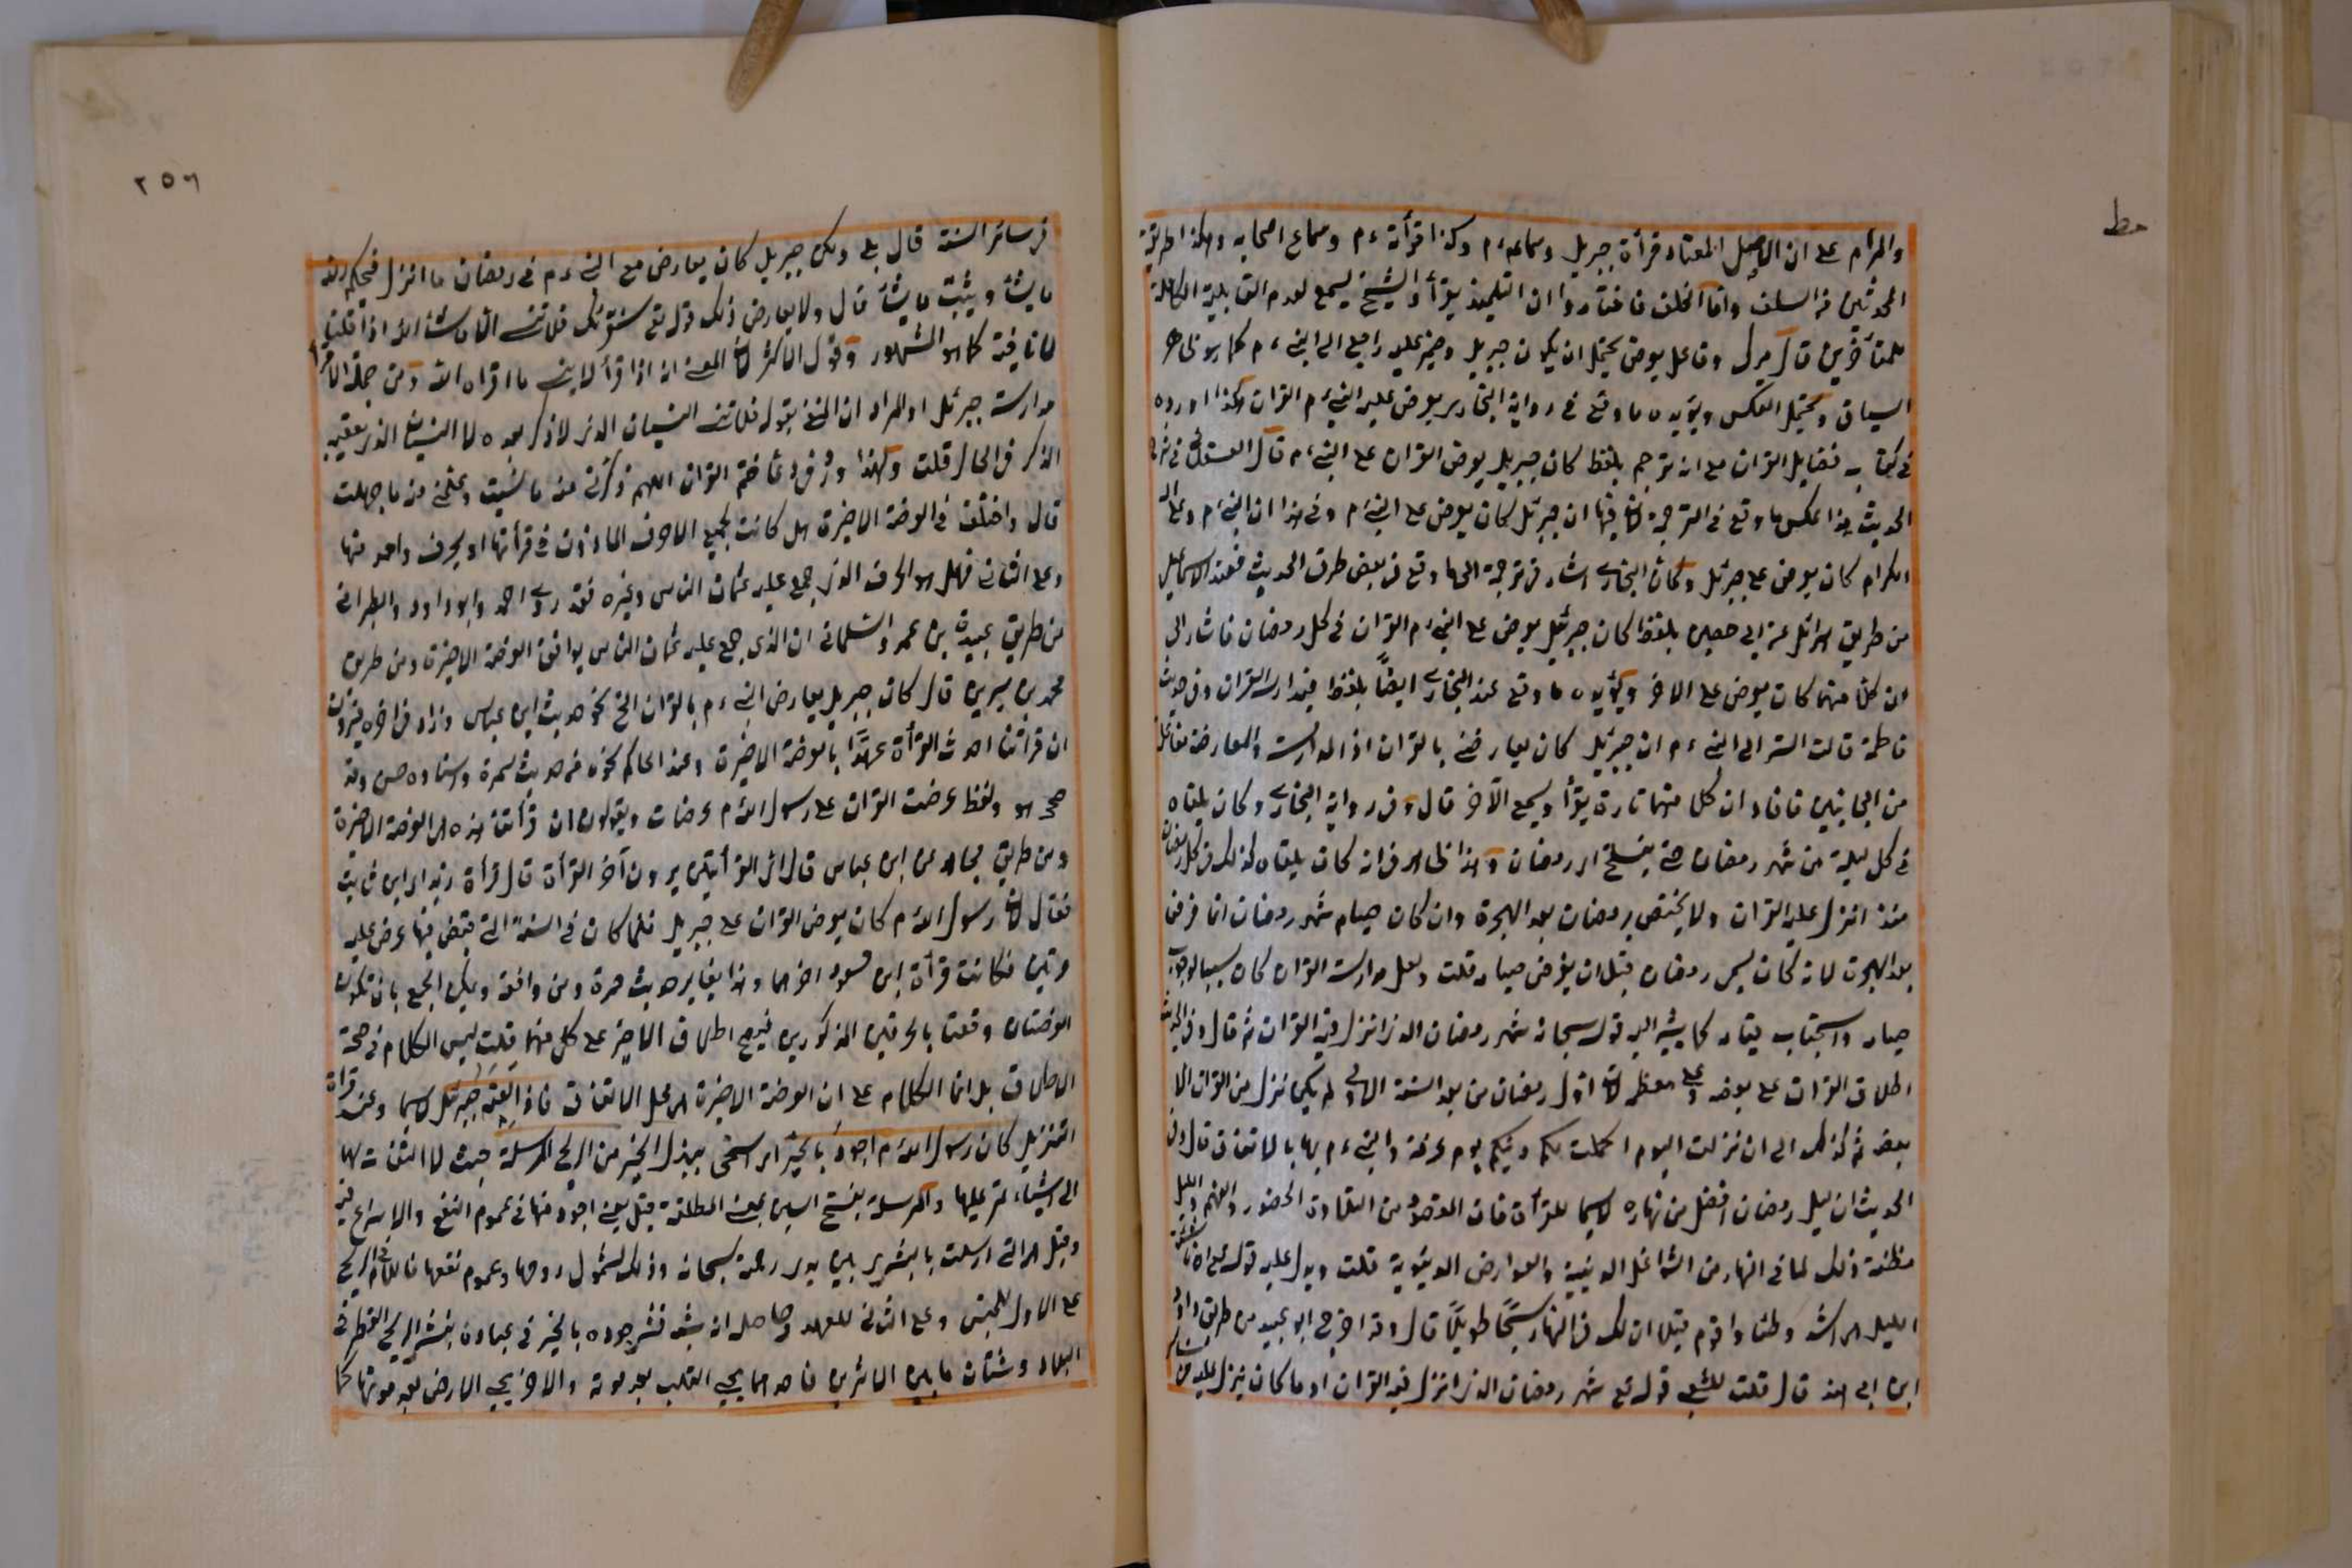 حط
والمرأم على ان الاصل المعتاد قرأة جبريل وسماعه ءم وكذا قرأته ءم وسماع اصحابه وهكذا طريقة
المحدثين من السلف واما الخلف فاختاروا ان التلميذ يقرأ والشيخ يسمع لعدم القابلية الكاملة
للمتأخرين قال ميرك وفاعل يعرض يحتمل ان يكون جبريل وضمير عليه راجع الى النبي ءم كما هو ظاهر
السياق ويحتمل العكس ويؤيده ما وقع في رواية البخاري يعرض عليه النبي ءم القران هكذا اورده
في كتابه فضايل القران مع انه ترجم بلفظ كان جبريل يعرض القران على النبي ءم قال العسقلاني في شرح
الحديث هذا عكس ما وقع في الترجمة لان فيها ان جبرئل كان يعرض على النبي ءم وفي هذا ان النبي ءم وعلى اله
الكرام كان يعرض على جبرئل وكأن البخاري اشار في ترجمة الى ما وقع في بعض طرق الحديث فعند الاسماعيلي
من طريق اسرائل عن ابي حصين بلفظ كان جبرئيل يعرض على النبي ءم القران في كل رمضان فاشار الى
ان كلا منهما كان يعرض على الاخر ويؤيده ما وقع عند البخاري ايضًا بلفظ فيدارسه القران وفي حديث
فاطمة قالت اسر الى النبي ءم ان جبرئيل كان يعارضني بالقران اذ المدارسة والمعارضة مفاعلة
من الجانبين فافاد ان كلا منهما تارة يقرأ ويسمع الآخر قال وفي رواية البخاري وكان يلقاه
في كل ليلة من شهر رمضان حتى ينسلخ اي رمضان وهذا ظاهر في انه كان يلقاه كذلك في كل رمضان
منذ انزل عليه القران ولا يختص برمضان بعد الهجرة وان كان صيام شهر رمضان انما فرض
بعد الهجرة لانه كان يسمى رمضان قبل ان يفرض صيامه قلت ولعل مدارسة القران كان سببا لوجوب
صيامه واستحباب قيامه كما يشير اليه قوله سبحانه شهر رمضان الذي انزل فيه القران ثم قال وفي الحديث
اطلاق القران على بعضه وعلى معظمه لان اول رمضان من بعد السنة الاولى لم يكن نزل من القران الا
بعضه ثم كذلك الى ان نزلت اليوم اكملت لكم دينكم يوم عرفة والنبي ءم بها بالاتفاق قال وفي
الحديث ان ليل رمضان افضل من نهاره لاسيما للقرأة فان المقصود من التلاوة الحضور والفهم والليل
مظنة ذلك لما في النهار من الشواغل الدينية والعوارض الدنيوية قلت ويدل عليه قوله تع ان ناشئة
الليل هي اشد وطئا واقوم قيلا ان لك في النهار سبحًا طويلًا قال وقد اخرج ابو عبيد من طريق داود
ابن ابي هند قال قلت للشعبي قوله تع شهر رمضان الذي انزل فيه القران او ما كان ينزل عليه في
٢٥٦
في سائر السنة قال بلى ولكن جبريل كان يعارض مع النبي ءم في رمضان ما انزل فيحكم الله
ما يشأ ويثبت ما يشأ قال ولا يعارض ذلك قوله تع سنقرئك فلا تنسى الا ما شاء الله اذا قلنا
لا نافية كما هو المشهور وقول الاكثر لان المعنى انه اذا قرأ لا ينسى ما اقراه الله ومن جملة الاقرأ
مدارسة جبرئل او المراد ان المنفي بقوله فلا تنسى النسيان الذي لا ذكر بعده لا النسيان الذي يعقبه
الذكر في الحال قلت ولهذا ورد في دعا ختم القران اللهم ذكرني منه ما نسيت وعلمني منه ما جهلت
قال واختلف في العرضة الاخيرة هل كانت بجميع الاحرف الماذون في قرأتها او بحرف واحد منها
وعلى الثاني فهل هو الحرف الذي جمع عليه عثمان الناس وغيره فقد روى احمد وابو داود والطبراني
من طريق عبيدة بن عمرو السلماني ان الذي جمع عليه عثمان الناس يوافق العرضة الاخيرة ومن طريق
محمد بن سيرين قال كان جبريل يعارض النبي ءم بالقران الخ نحو حديث ابن عباس وزاد في اخره فيرون
ان قرأتنا احدث القرأة عهدًا بالعرضة الاخيرة وعند الحاكم نحوه من حديث سمرة واسناده حسن وقد
صححه هو ولفظه عرضت القران على رسول الله ءم عرضات ويقولون ان قرأتنا هذه هي العرضة الاخيرة
ومن طريق مجاهد عن ابن عباس قال اي القرأتين يرون آخر القرأة قال قرأة زيد اي ابن ثابت
فقال لا ان رسول الله ءم كان يعرض القران على جبريل فلما كان في السنة التي قبض فيها عرض عليه
مرتين فكانت قرأة ابن مسعود اخرهما وهذا يغاير حديث سمرة ومن وافقه ويمكن الجمع بان تكون
العرضتان وقعتا بالحرفين المذكورين فيصح اطلاق الاخير على كل منهما قلت ليس الكلام في صحة
الاطلاق بل انما الكلام على ان العرضة الاخيرة هي محل الاتفاق فاذا لقيه جبرئل لاسيما وعند قرأة
التنزيل كان رسول الله ءم اجود بالخير اي اسخى ببذل الخير من الريح المرسلة حيث لا التفات لها
الى اشياء تمر عليها والمرسلة بفتح السين بمعنى المطلقة قيل يعني اجود منها في عموم النفع والاسراع فيه
وقيل هي التي ارسلت بالبشرى بين يدي رحمة سبحانه وذلك لشمول روحها وعموم نفعها فاللام في الريح
على الاول للجنس وعلى الثاني للعهد وحاصله انه شبه نشر جوده بالخير في عباده بنشر الريح القطر في
البلاد وشتان ما بين الاثرين فاحدهما يحيى القلب بعد موته والاخر يحيى الارض بعد موتها كما